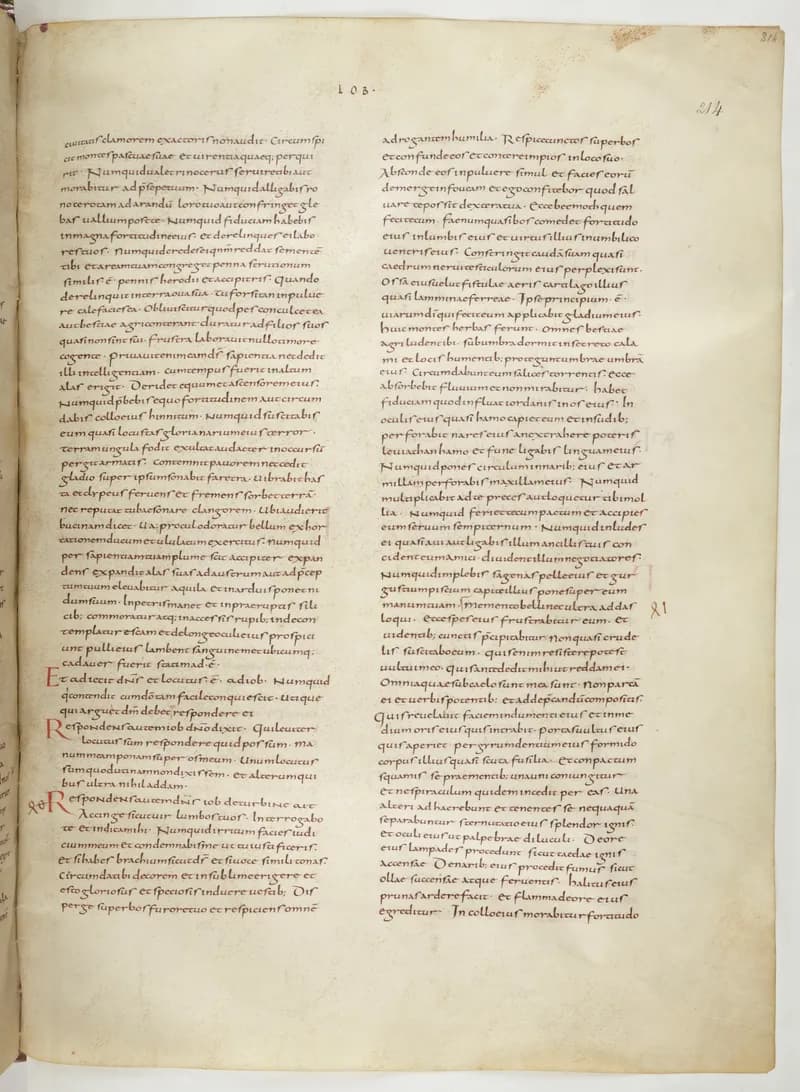 IOB·
214
214
ciuitatis clamorem exactoris non audit· Circumspi
cit montes pascuae suae· et uirentia quaeq; perqui
rit· Numquid ualet rinocerus seruire tibi aut
morabitur ad p̄sepe tuum· Numquid alligabis ro
noterota ad arandū loro tuo aut confringet gle
bas uallium post te· Numquid fiduciam habebis
in magna fortitudine eius et derelinques ei labo
res tuos· Numquid credes ei qnm̄ reddat sementē
tibi et aream tuam congreget penna strutionum
similis ē· pennis herodii et accipitris· Quando
derelinquit in terra oua sua· tu forsitan in puluc
re calefacies ea· Obliuiscitur quod pes conculcet ea
aut bestiae agri conterant· duratur ad filios suos
quasi non sint sui· frustra laborauit nullo timore
cogente· priuauit enim eam d̄s sapientia nec dedit
illi intelligentiam· cum tempus fuerit in altum
alas erigit· Deridet equum et ascensorem eius·
Numquid p̄bebis equo fortitudinem aut circum
dabis collo eius hinnitum· Numquid suscitabis
eum quasi locustas gloria narium eius terror·
terram ungula fodit exultat audacter in occursū
pergit armatis· Contemnit pauorem nec cedit
gladio super ipsum sonabit faretra· Uibrabit has
ta et clypeus feruens et fremens sorbet terrā·
nec reputat tubae sonare clangorem· Ubi audierit
bucinam dicet· Ua; procul odoratur bellum exhor
tationem ducum et ululatum exercitus· Numquid
per sapientiam tuam plumescit accipiter expan
dens expandit alas suas ad austrum aut ad p̄cep
tum tuum eleuabitur aquila et in arduis ponet ni
dum suum· In petris manet et in praeruptis sili
cib; commoratur atq; inaccessis rupib; inde con
templatur escam et de longe oculi eius prospici
unt pulli eius lambent sanguinem et ubicumq;
cadauer fuerit statim ad·ē·
Et adiecit dn̄s et locutus·ē· ad iob· Numquid
q̇ contendit cum dō tam facile conquiescit· Utique
qui arguet dm̄ debet respondere ei
Respondens autem iob dn̄o dixit· Qui leuiter
locutus sum respondere quid possum· ma
num meam ponam super os meum· Unum locutus
sum quod utinam non dixissem· et alterum qui
bus ultra nihil addam·
Respondens autem dn̄s iob de turbine ait
Accinge sicut uir lumbos tuos· Interrogabo
te et indica mihi· Numquid irritum facies iudi
cium meum et condemnabis me ut tu iustificeris·
et si habes brachium sicut d̄s et si uoce simili tonas·
Circumda tibi decorem et in sublime erigere et
esto gloriosus et speciosis induere uestib; Dis
perge superbos furore tuo et respiciens omnē
adrogantem humilia· Respice cunctos superbos
et confunde eos et contere impios in loco suo·
Absconde eos in puluere simul et facies eorū
demerge in foueam et ego confitebor quod sal
uare te possit dextera tua· Ecce beemoth quem
feci tecum· faenum quasi bos comedet fortitudo
eius in lumbis eius et uirtus illius in umbilico
uentris eius· Constringit caudā suam quasi
caedrum nerui testiculorum eius perplexi sunt·
Ossa eius uelut fistulae aeris cartalago illius
quasi lamminae ferreae· Ipse principium·ē·
uiarum dī qui fecit eum applicabit gladium eius·
huic montes herbas ferunt· Omnes bestiae
agri ludent ibi· sub umbra dormit in secreto cala
mi et locis humentib; protegunt umbrae umbrā
eius· Circumdabunt eum salices torrentis· Ecce
absorbebit fluuium et non mirabitur· habet
fiduciam quod influat iordanis in os eius· In
oculis eius quasi hamo capiet eum et in sudib;
perforabit nares eius an extrahere poteris
leuiathan hamo et fune ligabis linguam eius·
Numquid pones circulum in narib; eius et ar
milla perforabis maxillam eius· Numquid
multiplicabit ad te preces aut loquetur tibi mol
lia· Numquid feriet tecum pactum et accipies
eum seruum sempiternum· Numquid inludes
ei quasi aui aut ligabis illum ancillis tuis con
cident eum amici diuident illum negotiatores·
Numquid implebis sagenas pelle eius et gur
gustium piscium capite illius pone super eum
manum tuam· Memento belli nec ultra addas
loqui· Ecce spes eius frustrabitur eum· et
uidentib; cunctis p̄cipitabitur Non quasi crude
lis suscitabo eum· quis enim resistere potest
uultui meo· quis ante dedit mihi ut reddam ei·
Omnia quae sub caelo sunt mea sunt· Non parcā
ei et uerbis potentib; et ad dep̄candū compositis·
Quis reuelabit faciem indumenti eius et in me
dium oris eius quis intrabit· portas uultus eius
quis aperiet per gyrum dentium eius formido
corpus illius quasi scuta fusilia· et compactum
squamis se praementib; una uni coniungitur
et ne spiraculum quidem incedit per eas· Una
alteri adhaerebunt et tenentes se nequaquā
separabuntur sternutatio eius splendor ignis·
et oculi eius ut palpebrae diluculi· De ore
eius lampades procedunt sicut taedae ignis
accensae· De narib; eius procedit fumus sicut
ollae succensae atque feruentis· halitus eius
prunas ardere facit· et flamma de ore eius
egreditur· In collo eius morabitur fortitudo